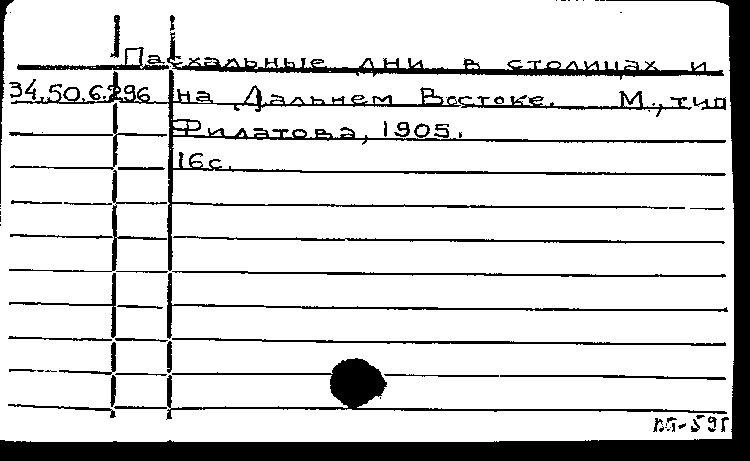 Пасхальные дни в столицах и
34.50.6.296 на Дальнем Востоке. М., тип
Филатова, 1905.
16с.